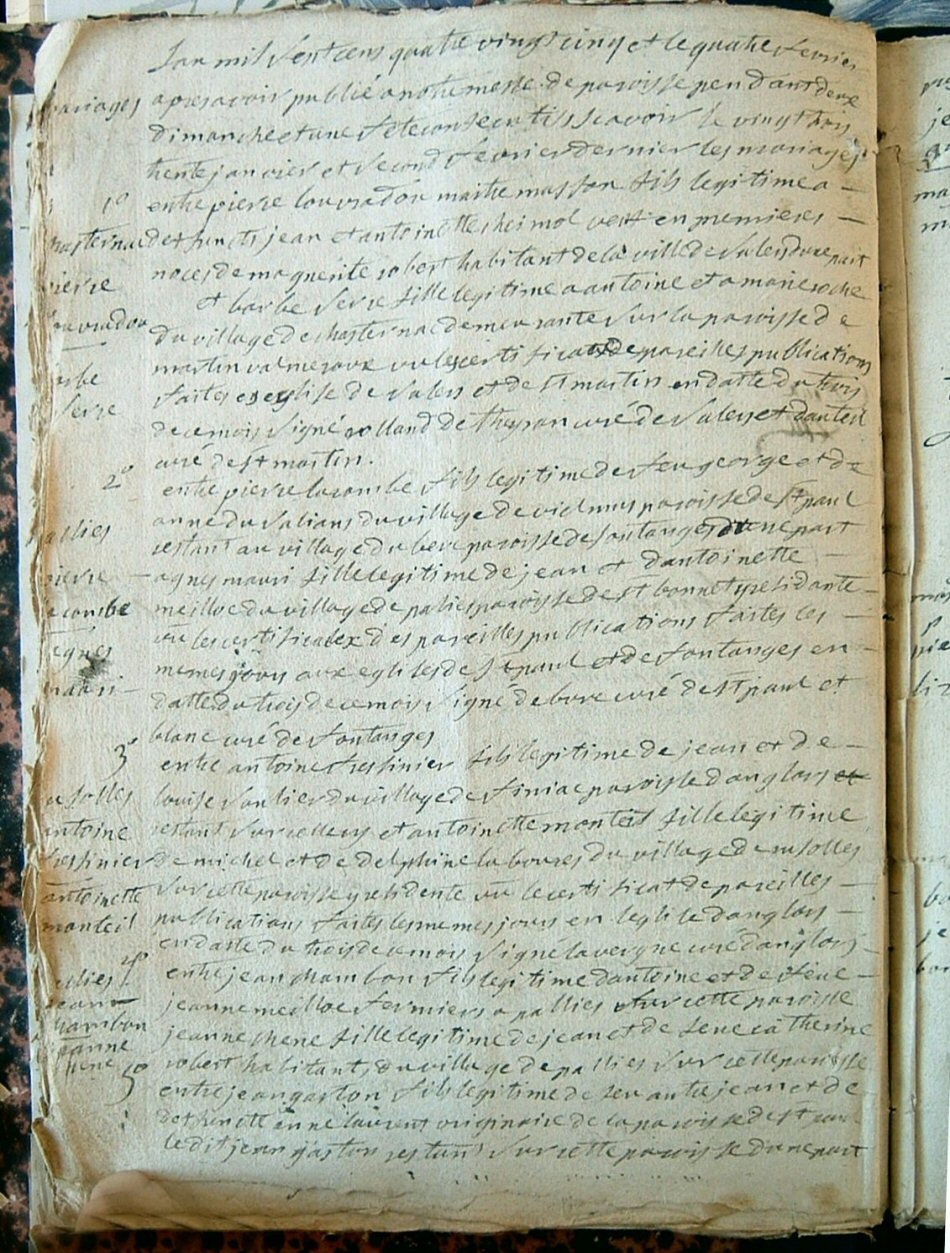 Lan mil sept cens quatre vingt cinq et le quatre fevrier
mariages
apres avoir publié a notre messe de paroisse pendant deux
dimanche et une fete consecutifs scavoir le vingt trois
trente janvier et second fevrier dernier les mariages
1º
entre pierre louvradou maitre masson fils legitime a
chasternac
defuncts jean et antoinette cheimol veuf en premieres
noces de magnerite robert habitant de la ville de salers d'une part
pierre
et barbe serre fille legitime a antoine et a marie roche
louvradou
du village de chasternac demeurante sur la paroisse de
martin valmeroux vu les certificats de pareilles publications
barbe
faites es eglise de salers et de st martin en datte du trois
serre
de ce mois signé rolland de curé de salers et dauteil
curé de st martin.
2º
entre pierre lacombe fils legitime de feu george et de
anne du salians du village de paroisse de st paul
pallies
restant au village du paroisse de fontanges d'une part
pierre
agnes mauri fille legitime de jean et d'antoinette
lacombe
meilloc du village de palies paroisse de st bonnet y residante
agnes
vu les certificates des pareilles publications faites les
mauri
memes jours aux eglises de st paul et de fontanges en
datte du trois de ce mois signé de bore curé de st paul et
blanc curé de fontanges
3º
entre antoine tressinier fils legitime de jean et de
louise saulier du village de finiac paroisse d'anglars et
antoine
restant sur salers et antoinette monteil fille legitime
tressinier
de michel et de delphine laboures du village de rusolles
antoinette
sur cette paroisse y residente vu le certificat de pareilles
monteil
publications faites les memes jours en leglise d'anglars
en datte du trois de ce mois signé lavergne curé d'anglars
pallies 4º
entre jean chambon fils legitime d'antoine et de feue
jean
jeanne meilloc fermiers a pallies sur cette paroisse
chambon
jeanne chene fille legitime de jean et de feue catherine
jeanne
chene
robert habitants du village de pallies sur cette paroisse
5º
entre jean gaston fils legitime de feu autre jean et de
defuncte anne laurent originaire de la paroisse de st paul
ledit jean gaston restant sur cette paroisse d'une part